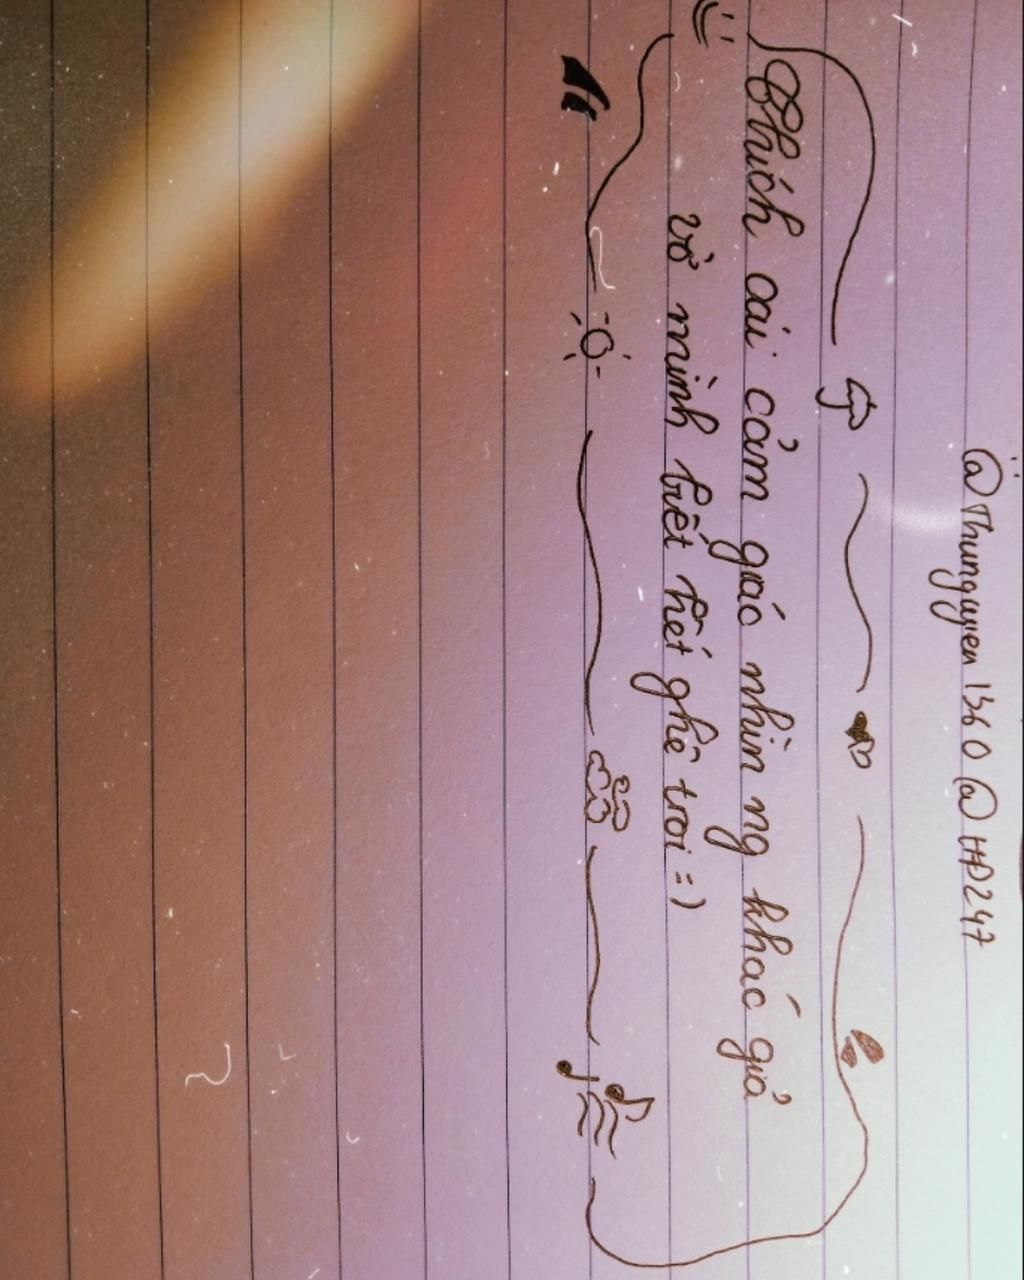 @Thunguyen1360 @HĐ247
Thích cái cảm giác nhìn ng khác giả
vờ mình biết hết ghê trơi =)